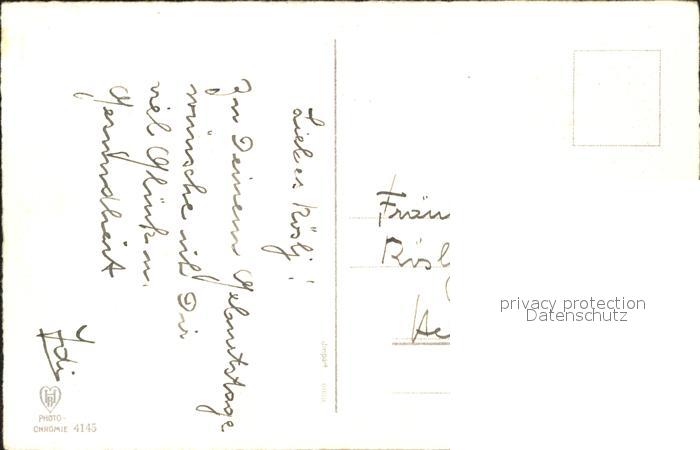 Liebes Rösly!
Zu Deinem Geburtstage
wünsche ich Dir
viel Glück u.
Gesundheit
Idi
Fräu
Rösl
He
privacy protection
Datenschutz
PHOTO-
CHROMIE 4145